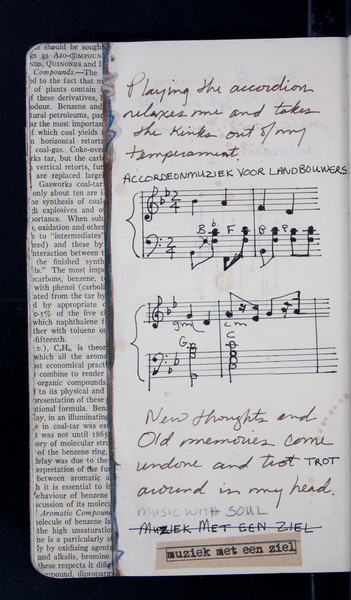 s should be sought
gs as AZO-COMPOUN
NDS, QUINONES and I
Compounds.—The
ed to the fact that m
of plants contain
f these derivatives,
Benzene and
tural petroleums, par
ar the most important
f which coal yields
n horizontal retorts
coal-gas. Coke-ove
rks tar, but the car
vertical retorts, fur
are replaced large
Gasworks coal-tar
only about ten are i
he synthesis of coal
h explosives and o
portance. When sub
, oxidation and other
to "intermediates"
ured) and these by
nteraction between
the finished synth
ls." The most imp
ocarbons, benzene, t
with phenol (carboli
ated from the tar by
d by appropriate
0·5% of the five c
which naphthalene f
ther with toluene o
-fifteenth.
C₆H₆, is theor
which all the aroma
st economical practi
combine to render
organic compounds,
to its physical and
presentation of these
tional formula. Benz
lay, in an illuminating
e in coal-tar was est
t was not until 1865
ory of molecular stru
of the benzene ring,
delay was due to the
erpretation of the fu
between aromatic a
h it is essential to i
ehaviour of benzene
scussion of its molec
Aromatic Compound
olecule of benzene la
the high unsaturatio
ne is a particularly st
ly by oxidizing agent
and alkalis, bromine
these respects it diffe
mpound, dipropar
Playing the accordion
relaxes me and takes
the kinks out of my
temperament
ACCORDEONMUZIEK VOOR LANDBOUWERS
2 4
2 4 B♭ F B F
gm cm
G C
New thoughts and
Old memories come
undone and trot TROT
around in my head.
MUSIC WITH SOUL
MUZIEK MET EEN ZIEL
muziek met een ziel